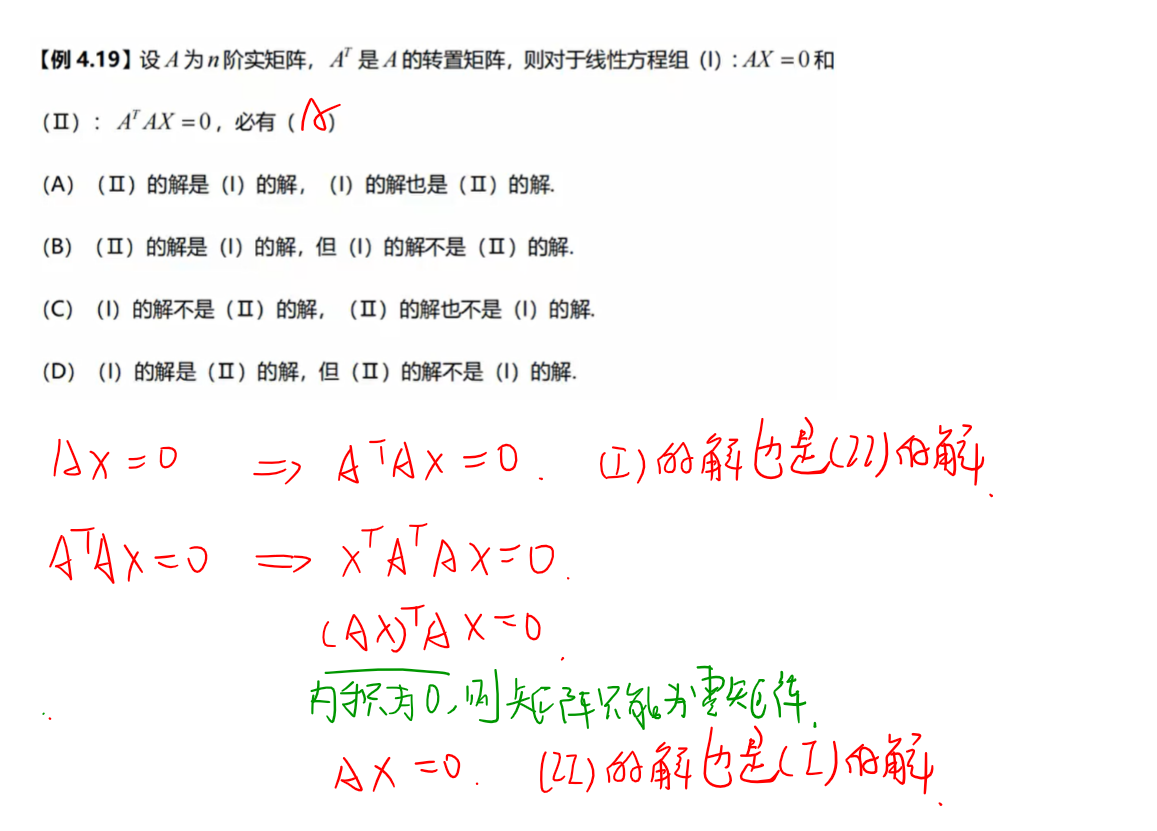 【例 4.19】设 A 为 n 阶实矩阵，A^T 是 A 的转置矩阵，则对于线性方程组（I）: AX = 0 和
（Ⅱ）： A^T AX = 0，必有（A）
（A）（Ⅱ）的解是（I）的解，（I）的解也是（Ⅱ）的解.
（B）（Ⅱ）的解是（I）的解，但（I）的解不是（Ⅱ）的解.
（C）（I）的解不是（Ⅱ）的解，（Ⅱ）的解也不是（I）的解.
（D）（I）的解是（Ⅱ）的解，但（Ⅱ）的解不是（I）的解.
AX = 0 ⇒ A^T AX = 0. (I)的解也是(II)的解.
A^T AX = 0 ⇒ X^T A^T AX = 0.
(AX)^T AX = 0.
内积为0，则矩阵只能为零矩阵.
AX = 0. (II)的解也是(I)的解.